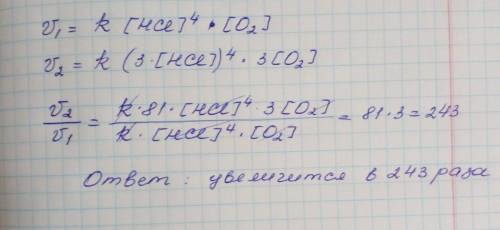 v₁ = k [HCl]⁴ • [O₂]
v₂ = k (3·[HCl])⁴ · 3[O₂]
v₂/v₁ = k·81·[HCl]⁴·3[O₂] / k·[HCl]⁴·[O₂] = 81·3 = 243
Ответ : увеличится в 243 раза